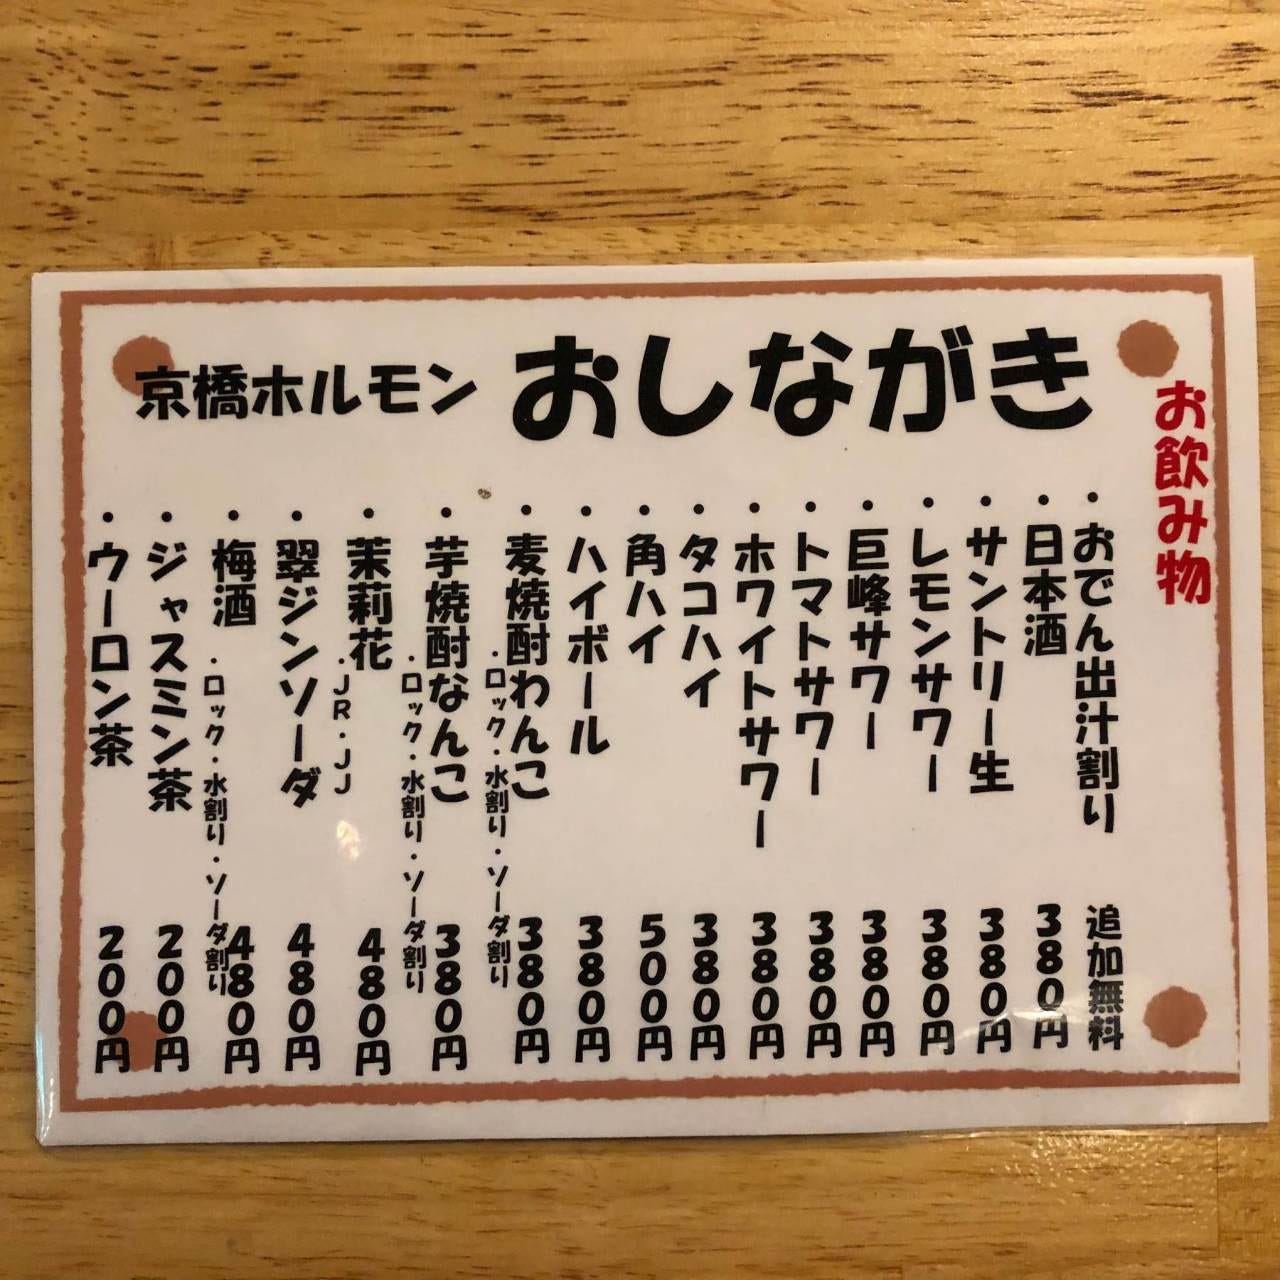 京橋ホルモン おしながき
お飲み物
・おでん出汁割り 追加無料
・日本酒 380円
・サントリー生 380円
・レモンサワー 380円
・巨峰サワー 380円
・トマトサワー 380円
・ホワイトサワー 380円
・タコハイ 380円
・角ハイ 500円
・ハイボール 380円
・麦焼酎わんこ 380円
・ロック・水割り・ソーダ割り
・芋焼酎なんこ 380円
・ロック・水割り・ソーダ割り
・茉莉花 480円
・JR・JJ
・翠ジンソーダ 480円
・梅酒 480円
・ロック・水割り・ソーダ割り
・ジャスミン茶 200円
・ウーロン茶 200円